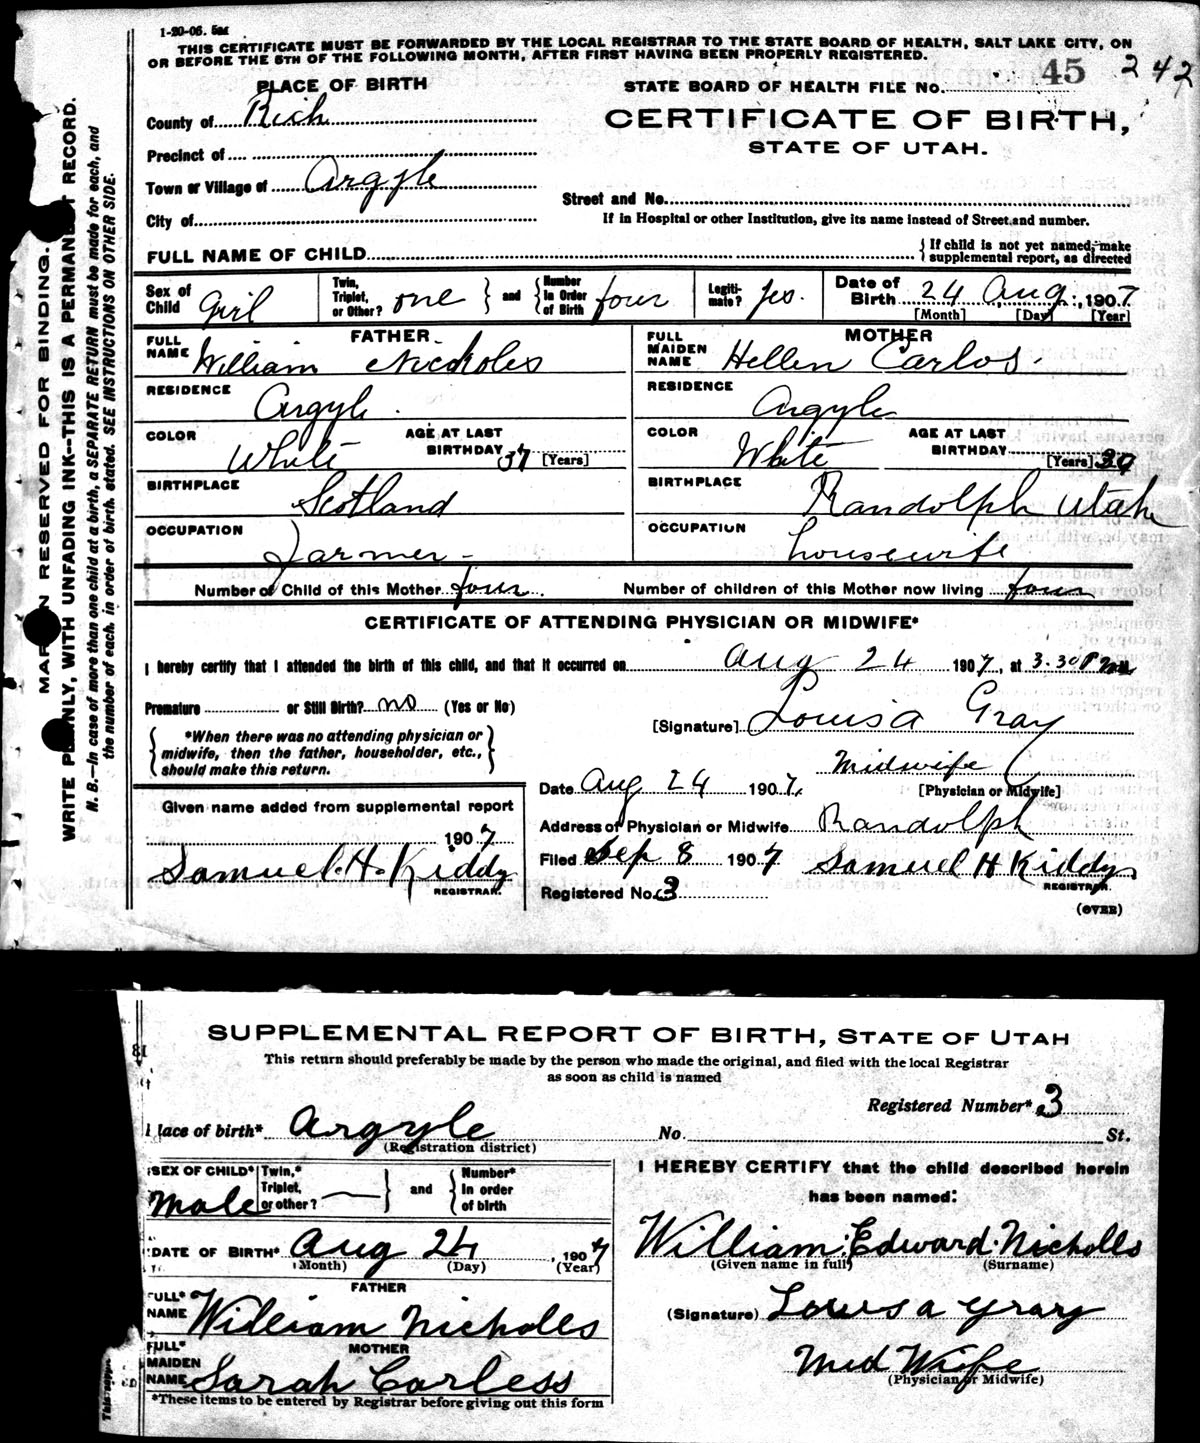 1-20-06. 5M
THIS CERTIFICATE MUST BE FORWARDED BY THE LOCAL REGISTRAR TO THE STATE BOARD OF HEALTH, SALT LAKE CITY, ON
OR BEFORE THE 5TH OF THE FOLLOWING MONTH, AFTER FIRST HAVING BEEN PROPERLY REGISTERED.
45 242
PLACE OF BIRTH
STATE BOARD OF HEALTH FILE No.
County of Rich
CERTIFICATE OF BIRTH,
STATE OF UTAH.
Precinct of
Town or Village of Argyle
Street and No.
City of
If in Hospital or other Institution, give its name instead of Street and number.
FULL NAME OF CHILD
{ If child is not yet named, make
supplemental report, as directed
Sex of Child Girl
Twin, Triplet, or Other? one } and { Number In Order of Birth four
Legiti- mate? yes.
Date of Birth 24 Aug., 1907
[Month] [Day] [Year]
FATHER
FULL NAME William Nickoles
RESIDENCE
Argyle.
COLOR White AGE AT LAST BIRTHDAY 37 [Years]
BIRTHPLACE
Scotland
OCCUPATION
Farmer-
MOTHER
FULL MAIDEN NAME Hellen Carlos.
RESIDENCE
Argyle
COLOR White AGE AT LAST BIRTHDAY [Years] 30
BIRTHPLACE
Randolph Utah
OCCUPATION
housewife
Number of Child of this Mother four. Number of children of this Mother now living four
CERTIFICATE OF ATTENDING PHYSICIAN OR MIDWIFE*
I hereby certify that I attended the birth of this child, and that it occurred on Aug 24 1907, at 3.30 P m
Premature or Still Birth? no (Yes or No)
[Signature] Louisa Gray
{ *When there was no attending physician or
midwife, then the father, householder, etc.,
should make this return. }
Midwife
[Physician or Midwife]
Date Aug 24 1907.
Given name added from supplemental report
1907
Address of Physician or Midwife Randolph
Samuel. H. Kiddy
REGISTRAR.
Filed Sep 8 1907 Samuel H Kiddy
REGISTRAR.
Registered No. 3
(OVER)
MARGIN RESERVED FOR BINDING.
WRITE PLAINLY, WITH UNFADING INK--THIS IS A PERMANENT RECORD.
N. B.—In case of more than one child at a birth, a SEPARATE RETURN must be made for each, and
the number of each, in order of birth, stated. SEE INSTRUCTIONS ON OTHER SIDE.
SUPPLEMENTAL REPORT OF BIRTH, STATE OF UTAH
This return should preferably be made by the person who made the original, and filed with the local Registrar
as soon as child is named
Registered Number* 3
lace of birth* Argyle No. St.
(Registration district)
SEX OF CHILD* Male
Twin,* Triplet, or other? — } and { Number* In order of birth
DATE OF BIRTH* Aug 24, 1907
(Month) (Day) (Year)
FATHER
FULL* NAME William Nicholls
MOTHER
FULL* MAIDEN NAME Sarah Carless
*These items to be entered by Registrar before giving out this form
I HEREBY CERTIFY that the child described herein
has been named:
William Edward Nicholls
(Given name in full) (Surname)
(Signature) Louisa Gray
Mid Wife
(Physician or Midwife)